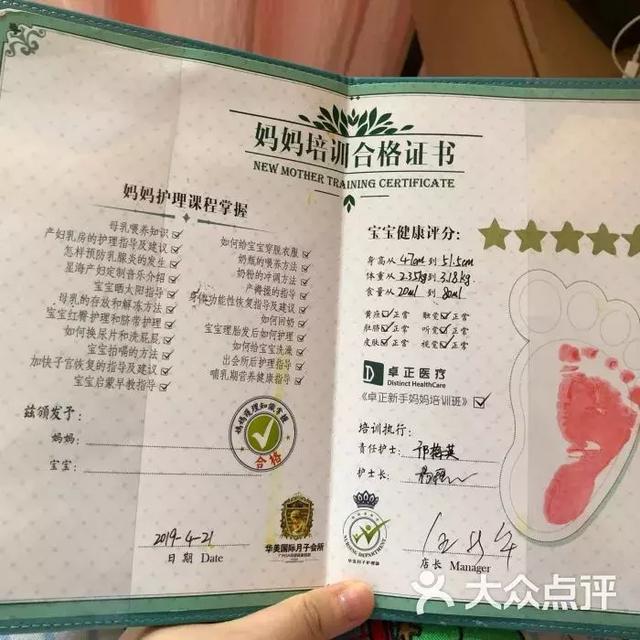 妈妈培训合格证书
NEW MOTHER TRAINING CERTIFICATE
妈妈护理课程掌握
母乳喂养知识
产妇乳房的护理指导及建议
怎样预防乳腺炎的发生
星海产妇定制音乐介绍
宝宝晒太阳指导
母乳的存放和解冻方法
宝宝红臀护理和脐带护理
如何换尿片和洗屁屁
宝宝拍嗝的方法
加快子宫恢复的指导及建议
宝宝启蒙早教指导
如何给宝宝穿脱衣服
奶瓶的喂养方法
奶粉的冲调方法
产褥操的指导
身体功能性恢复指导及建议
如何回奶
宝宝理胎发后如何护理
如何给宝宝洗澡
出会所后护理指导
哺乳期营养健康指导
兹颁发予：
妈妈：
宝宝：
妈妈护理知识掌握
合格
2019-4-21
日期 Date
华美国际月子会所
宝宝健康评分：
身高从47cm到51.5cm
体重从2.35kg到3.18kg
食量从20ml到80ml
黄疸 正常 触觉 正常
肚脐 正常 听觉 正常
皮肤 正常 视觉 正常
卓正医疗
Distinct HealthCare
《卓正新手妈妈培训班》
培训执行：
责任护士：邝梅英
护士长：
NURSING DEPARTMENT
店长 Manager
大众点评